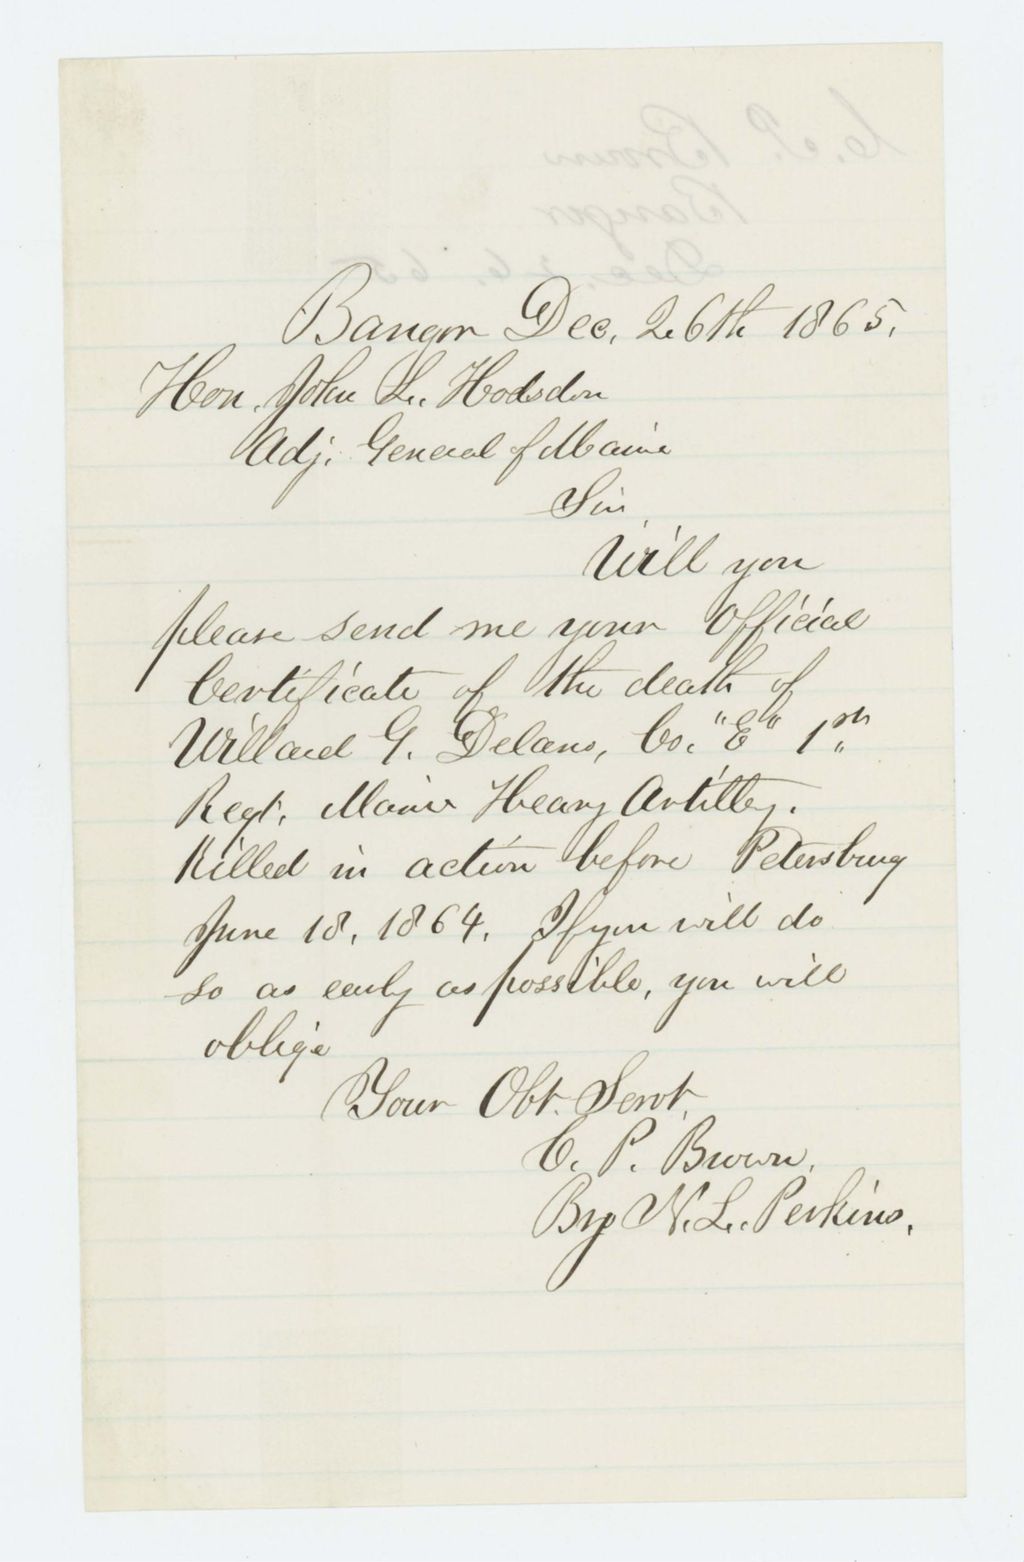 Bangor Dec. 26th 1865.
Hon. John L. Hodsdon
Adj. General of Maine
Sir
Will you
please send me your Official
Certificate of the death of
Willard G. Delano, Co. "E" 1st
Regt. Maine Heavy Artilley.
Killed in action before Petersburg
June 18, 1864. If you will do
so as early as possible, you will
oblige
Your Obt. Servt.
C. P. Brown.
By N. L. Perkins.
C. P. Brown
Bangor
Dec. 26. 65